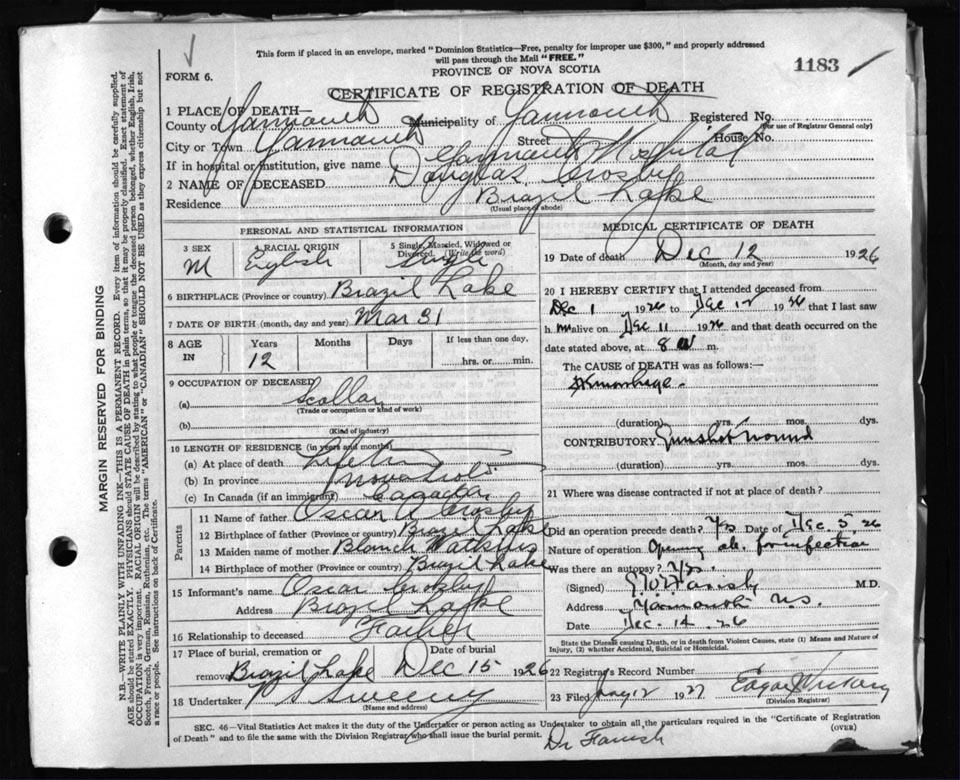 This form if placed in an envelope, marked "Dominion Statistics—Free, penalty for improper use $300," and properly addressed
will pass through the Mail "FREE."
PROVINCE OF NOVA SCOTIA
1183
FORM 6.
CERTIFICATE OF REGISTRATION OF DEATH
1 PLACE OF DEATH—
County of Yarmouth Municipality of Yarmouth Registered No.
(For use of Registrar General only)
City or Town Yarmouth Street House No.
If in hospital or institution, give name Yarmouth Hospital
2 NAME OF DECEASED Douglas Crosby
Residence Brazil Lake
(Usual place of abode)
PERSONAL AND STATISTICAL INFORMATION
3 SEX 4 RACIAL ORIGIN 5 Single, Married, Widowed or
Divorced. (Write the word)
M English Single
6 BIRTHPLACE (Province or country) Brazil Lake
7 DATE OF BIRTH (month, day and year) Mar 31
8 AGE IN Years Months Days If less than one day,
12 hrs. or min.
9 OCCUPATION OF DECEASED
(a) Scollar
(Trade or occupation or kind of work)
(b)
(Kind of industry)
10 LENGTH OF RESIDENCE (in years and months)
(a) At place of death Life time
(b) In province Nova Scotia
(c) In Canada (if an immigrant) Canada
Parents
11 Name of father Oscar A Crosby
12 Birthplace of father (Province or country) Brazil Lake
13 Maiden name of mother Blanch Watkins
14 Birthplace of mother (Province or country) Brazil Lake
15 Informant's name Oscar Crosby
Address Brazil Lake
16 Relationship to deceased Father
17 Place of burial, cremation or Date of burial
removal Brazil Lake Dec 15 1926
18 Undertaker Sweeny
(Name and address)
MEDICAL CERTIFICATE OF DEATH
19 Date of death Dec 12 1926
(Month, day and year)
20 I HEREBY CERTIFY that I attended deceased from
Dec 1 1926 to Dec 12 1926 that I last saw
h im alive on Dec 11 1926 and that death occurred on the
date stated above, at 8 m.
The CAUSE OF DEATH was as follows:—
Hemorrhage
(duration) yrs. mos. dys.
CONTRIBUTORY Gunshot wound
(duration) yrs. mos. dys.
21 Where was disease contracted if not at place of death?
Did an operation precede death? Yes Date of Dec. 5 26
Nature of operation Opening ab. for infection
Was there an autopsy? Yes
(Signed) Farish M.D.
Address Yarmouth N.S.
Date Dec. 14. 26
State the Disease causing Death, or in death from Violent Causes, state (1) Means and Nature of
Injury, (2) whether Accidental, Suicidal or Homicidal.
22 Registrar's Record Number
23 Filed Jany 12 1927 Edgar
(Division Registrar)
SEC. 46—Vital Statistics Act makes it the duty of the Undertaker or person acting as Undertaker to obtain all the particulars required in the "Certificate of Registration
of Death" and to file the same with the Division Registrar who shall issue the burial permit.
(OVER)
Dr Farish
MARGIN RESERVED FOR BINDING
N.B.—WRITE PLAINLY WITH UNFADING INK—THIS IS A PERMANENT RECORD. Every item of information should be carefully supplied.
AGE should be stated EXACTLY. PHYSICIANS should STATE CAUSE OF DEATH in plain terms, so that it may be properly classified. Exact statement of
OCCUPATION is very important. RACIAL ORIGIN will be described by stating to what people or tongue the deceased person belonged, whether English, Irish,
Scotch, French, German, Russian, Ruthenian, etc. The terms "AMERICAN" or "CANADIAN" SHOULD NOT BE USED as they express citizenship but not
a race or people. See instructions on back of Certificate.